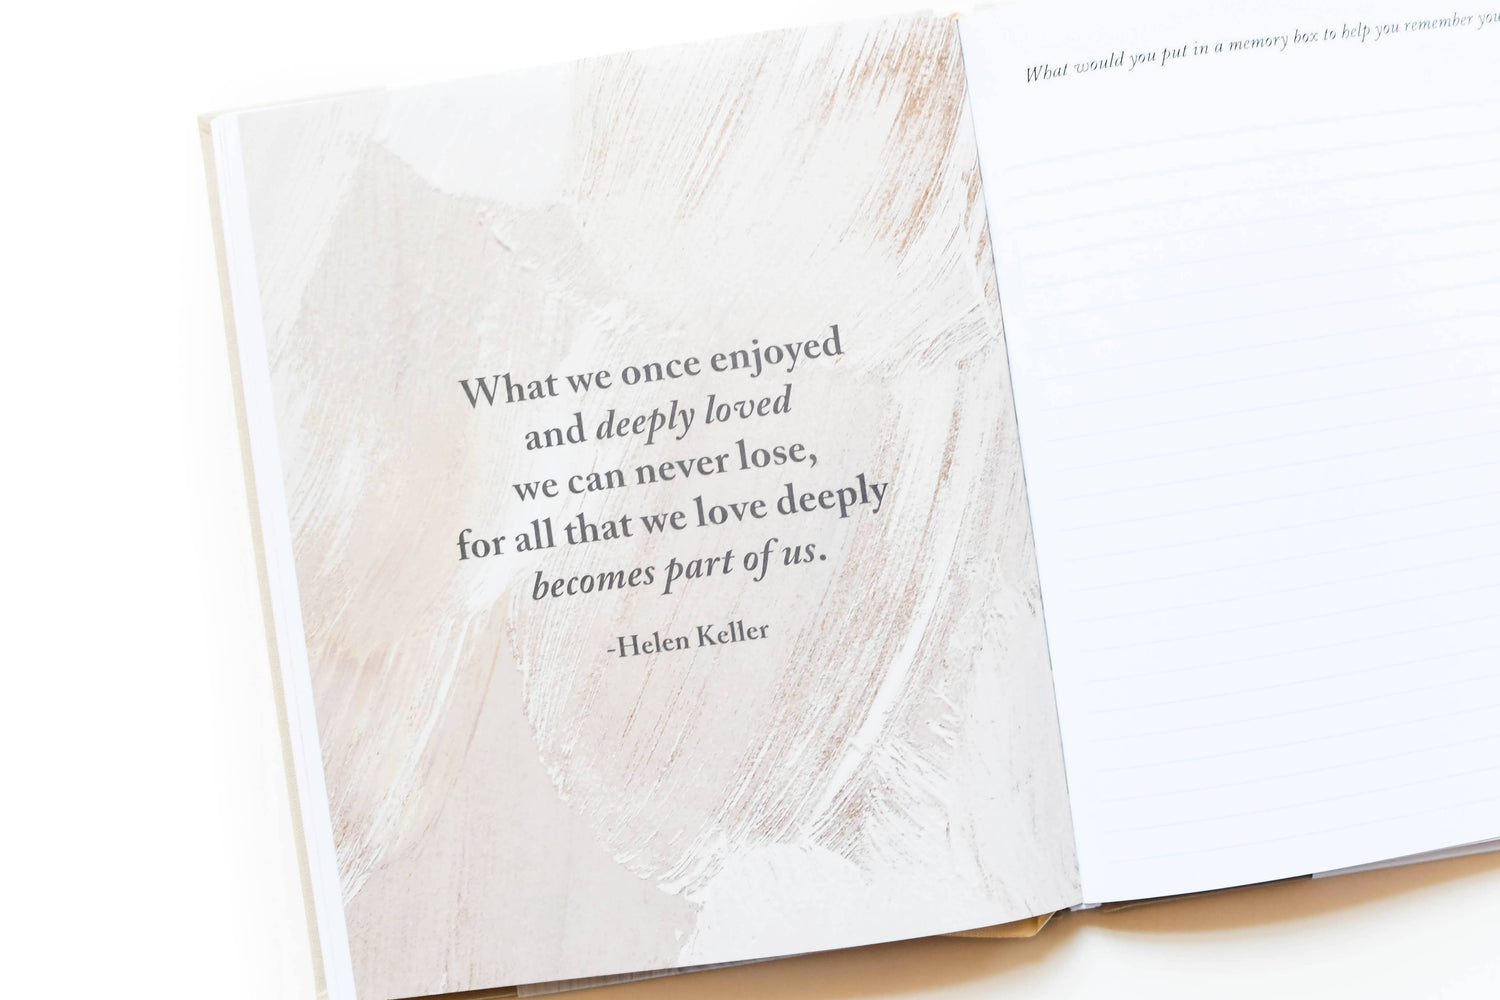 What we once enjoyed
and deeply loved
we can never lose,
for all that we love deeply
becomes part of us.
-Helen Keller
What would you put in a memory box to help you remember